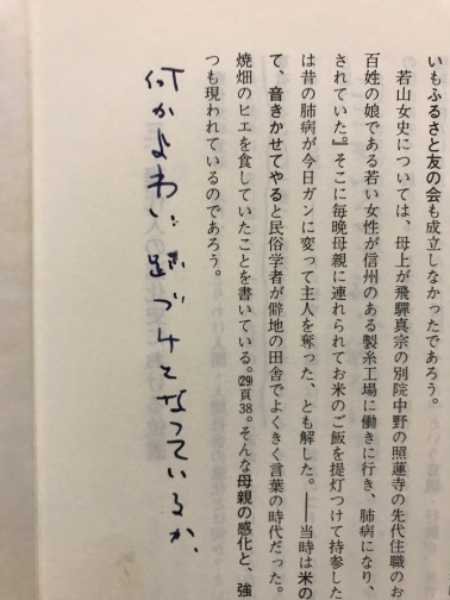 いもふるさと友の会も成立しなかったであろう。
若山女史については、母上が飛驒真宗の別院中野の照蓮寺の先代住職のお
百姓の娘である若い女性が信州のある製糸工場に働きに行き、肺病になり、
されていた。』そこに毎晩母親に連れられてお米のご飯を提灯つけて持参した
は昔の肺病が今日ガンに変って主人を奪った、とも解した。――当時は米の
て、音きかせてやると民俗学者が僻地の田舎でよくきく言葉の時代だった。
焼畑のヒエを食していたことを書いている。(29)頁38。そんな母親の感化と、強
つも現われているのであろう。
何かよわい
づけとなっているか、